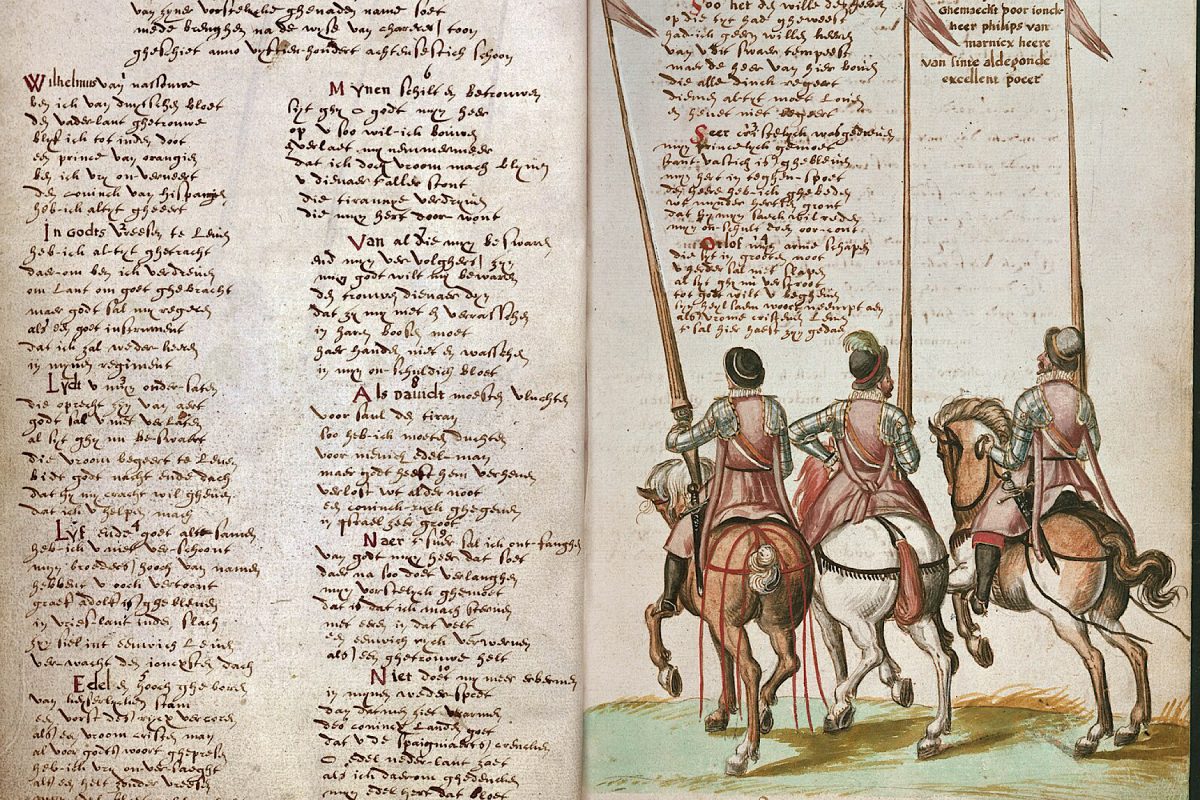 van zyne vorstelycke ghenaden name soet
mede brenghen na de wyse van chaerers toon
gheschiet anno vyftien-hondert achtensestich schoon
Wilhelmus van nassouwe
ben ick van duysschen bloet
den vaderlant ghetrouwe
blyf ick tot inden doot
een prince van orangien
ben ick vry onverveert
den coninck van hispangien
heb-ick altyt gheeert
In godts vreesen te leven
heb-ick altyt ghetracht
daerom ben ick verdreven
om lant om goet ghebracht
maer godt sal my regeren
als een goet instrument
dat ick zal weder-keeren
in mynen regiment
Lydt u myn onder-saten
die oprecht zyn van aert
godt sal u niet verlaten
al syt ghy nu be-swaert
die vroom begeert te leven
bidt godt nacht ende dach
dat hy my cracht wil gheven
dat ick u helpen mach
4
Lyf ende goet al te samen
heb-ick u niet ver-schoont
myn broeders hooch van namen
hebbent u ooch vertoont
graef adolf is ghebleven
in vrieslant inden slach
zyn siel int eewich leven
ver-wacht den joncxsten dach
Edel en hooch ghe-boren
van keyserlycken stam
een vorst des rycx vercoren
als een vroom cristen man
al voor godts woort ghepresen
heb-ick vry on-versaeght
als een helt zonder vreesen
6
Mynen schilt en betrouwen
syt ghy o godt myn heer
op u soo wil-ick bouwen
verlaet my nemmermeer
dat ick doch vroom mach blyven
u dienaer taller stont
die tirannye verdryven
die myn hert door-wont
7
Van al die my beswaren
end myn ver-volghers zyn
myn godt wilt my bewaren
den trouwen dienaer dyn
dat zy my niet en verrasschen
in haren boosen moet
haer handen niet en wasschen
in myn on-schuldich bloet
8
Als davidt moeste vluchten
voor saul den tiran
soo heb-ick moeten duchten
voor menich edel-man
maer godt heeft hem verheven
verlost wt alder noot
een coninck-ryck ghegeven
in israel zeer groot
9
Naer tsuer sal ick ont-fanghen
van godt myn heer dat soet
daer na soo doet verlanghen
myn vorstelyck ghemoet
dat is dat ick mach sterven
met eeren in dat velt
een eewich ryck verwerven
als een ghetrouwe helt
10
Niet doet my meer erbermen
in mynen weder-spoet
dan datmen siet verarmen
des conincx landen goet
dat u de spaigniaerts crencken
o edel neder-lant zoet
als ick daerom ghedencke
myn edel hert dat bloet
Soo het den wille des heeren
op die tyt had gheweest
had-ick geern willen keeren
van u dit swaer tempeest
maer de heer van hier boven
die alle dinck regeert
diemen altyt moet loven
en heuet niet begeert
Seer cristelyck was gedreven
myn princelyck ghemoet
stant-vastich is ghebleven
myn hert in teghen-spoet
den heere heb-ick ghebeden
wt mynder herten gront
dat hy myn saeck wil reden
myn on-schult doen oor-cont
Orlof myn arme schapen
die syt in grooten noot
u herder sal niet slapen
al syt ghy nu verstroot
tot godt wilt u begheven
syn heylsaem woort neempt aen
als vrome cristenen leven
t' sal hier haest zyn gedaen
Ghemaeckt door jonck
heer philips van
marnicx heere
van sinte aldegonde
excellent poeet